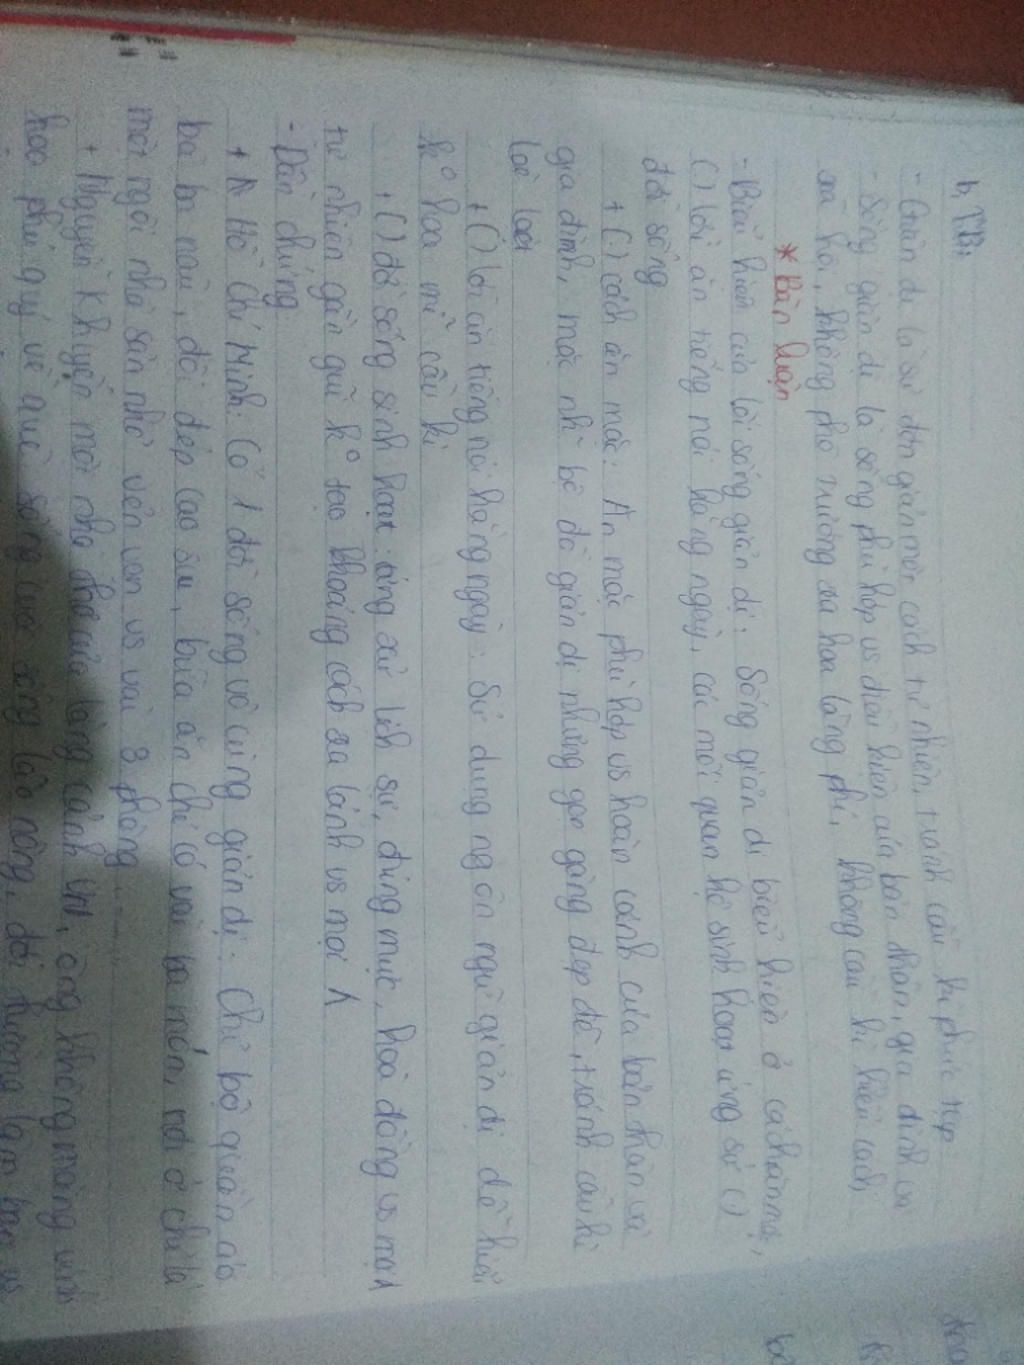 b, TB:
- Giản dị là sự đơn giản một cách tự nhiên, tránh cầu kì phức tạp
- Sống giản dị là sống phù hợp vs điều kiện của bản thân, gia đình và
xã hội, không phô trương xa hoa lãng phí, không cầu kì kiểu cách
* Bàn luận
- Biểu hiện của lối sống giản dị: Sống giản dị biểu hiện ở cách ăn mặc,
() lời ăn tiếng nói hàng ngày, các mối quan hệ sinh hoạt ứng sử ()
đời sống
+ () cách ăn mặc: Ăn mặc phù hợp vs hoàn cảnh của bản thân và
gia đình, mặc nh bộ đồ giản dị nhưng gọn gàng đẹp đẽ, tránh cầu kì
loè loẹt
+ () lời ăn tiếng nói hàng ngày: Sử dụng ngôn ngữ giản dị dễ hiểu
k° hoa mĩ cầu kì
+ () đời sống sinh hoạt: ứng xử lịch sự, đúng mực, hoà đồng vs mọi
tự nhiên gần gũi k° tạo khoảng cách xa lánh vs mọi
- Dẫn chứng
+ Hồ Chí Minh: Có 1 đời sống vô cùng giản dị: Chỉ bộ quần áo
bà ba nâu, đôi dép cao su, bữa ăn chỉ có vài ba món, nơi ở chỉ là
một ngôi nhà sàn nhỏ vẻn vẹn vs vài 3 phòng
+ Nguyễn Khuyến một nhà thơ của làng cảnh VN, ông không màng vinh
hoa phú quý về quê sống cuộc sống lão nông, đời thường làm bạn vs